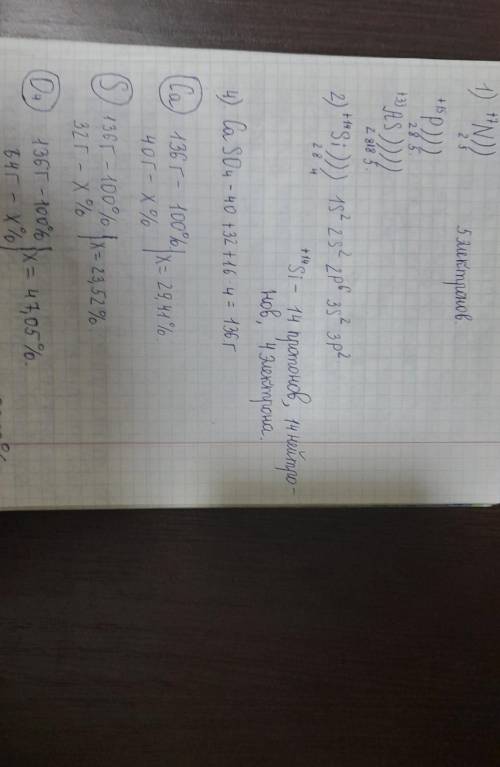 1) +7N))
2 5
5 электронов
+15P)))
2 8 5
+33AS))))
2 8 18 5.
2) +14Si))) 1S² 2S² 2p⁶ 3S² 3p²
2 8 4
+14Si – 14 протонов, 14 нейтро-
нов, 4 электрона.
4) CaSO₄ – 40 + 32 + 16 · 4 = 136 г
Ca 136 г – 100% | x = 29,41%
40 г – x%
S 136 г – 100% | x = 23,52%
32 г – x%
O₄ 136 г – 100% | x = 47,05%.
64 г – x%